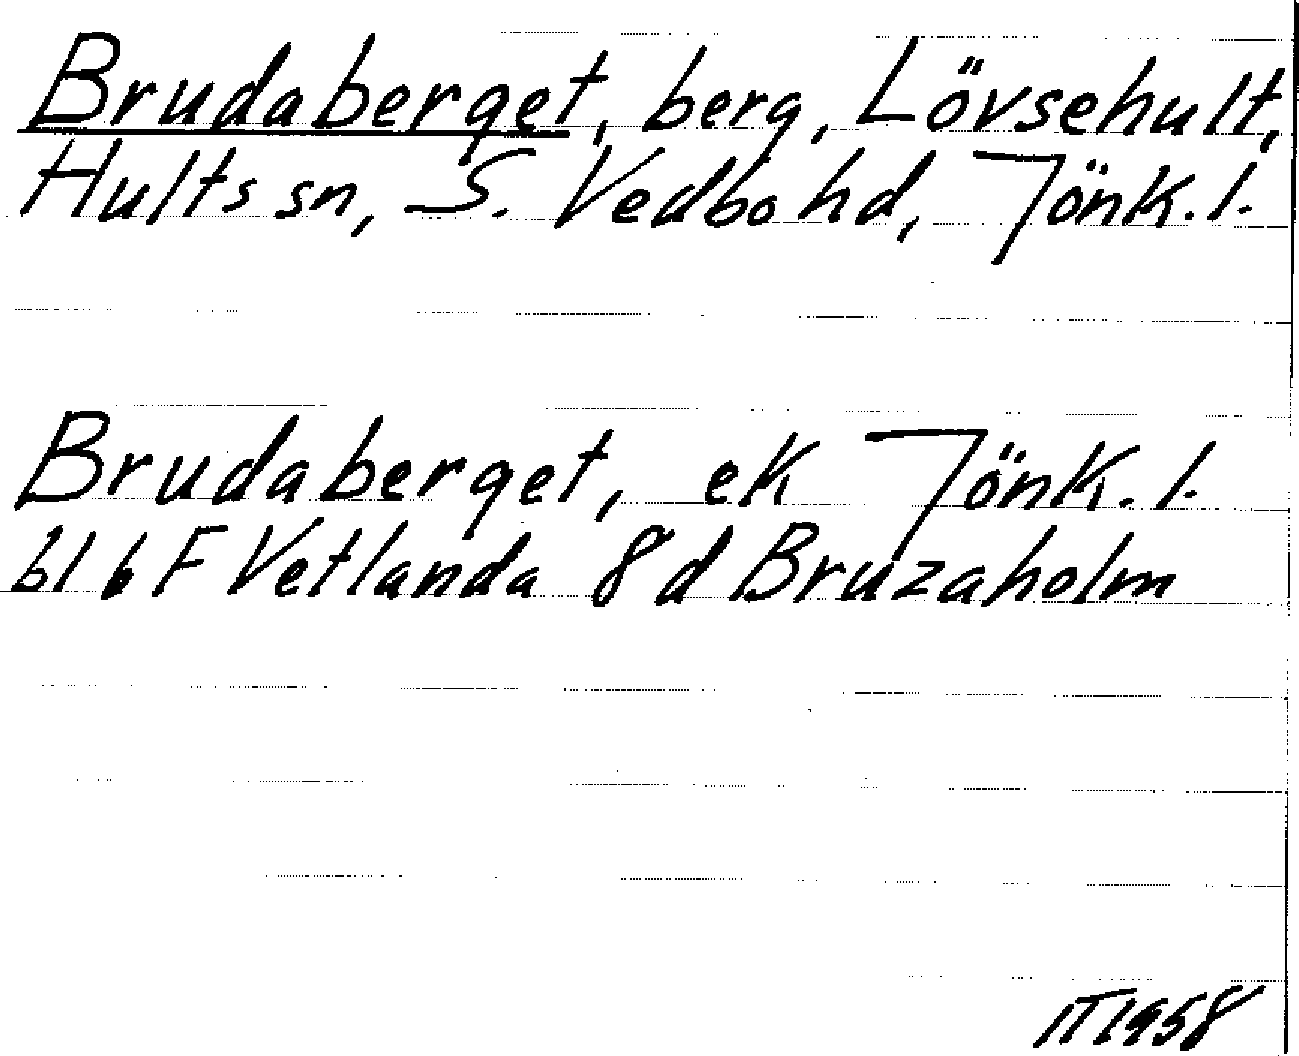 Brudaberget, berg, Lövsehult,
Hults sn, S. Vedbo hd, Jönk. l.
Brudaberget, ek Jönk. l.
bl 6 F Vetlanda 8 d Bruzaholm
IT 1958